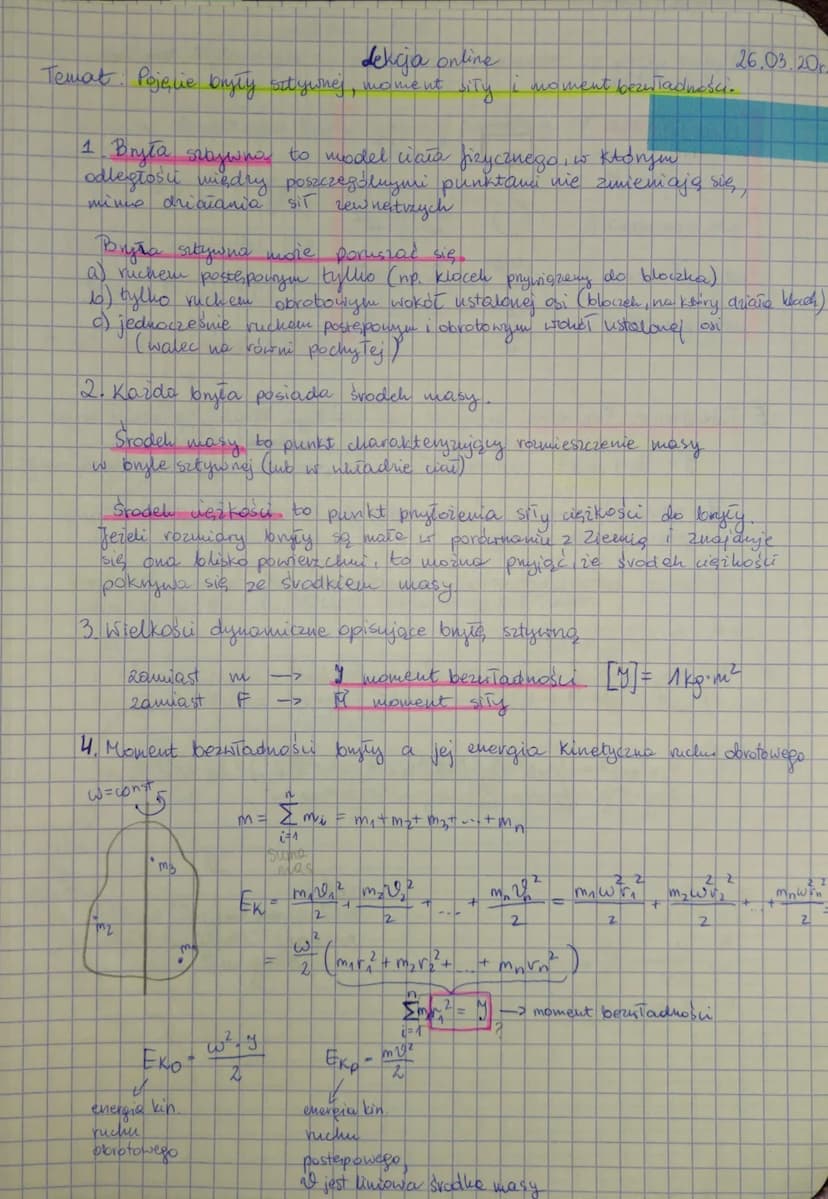 Lekcja online 26.03.20r.
Temat: Pojęcie bryły sztywnej, moment siły i moment bezwładności.
1. Bryła sztywna to model ciała fizycznego, w którym
odległości między poszczególnymi punktami nie zmieniają się,
mimo działania sił zewnętrznych
Bryła sztywna może poruszać się
a) ruchem postępowym tylko (np. klocek przywiązany do bloczka)
b) tylko ruchem obrotowym wokół ustalonej osi (bloczek, na który działa klocek)
c) jednocześnie ruchem postępowym i obrotowym wokół ustalonej osi
(walec na równi pochyłej)
2. Każda bryła posiada środek masy.
Środek masy to punkt charakteryzujący rozmieszczenie masy
w bryle sztywnej (lub w układzie ciał)
Środek ciężkości to punkt przyłożenia siły ciężkości do bryły.
Jeżeli rozmiary bryły są małe w porównaniu z Ziemią i znajduje
się ona blisko powierzchni, to można przyjąć, że środek ciężkości
pokrywa się ze środkiem masy
3. Wielkości dynamiczne opisujące bryłę sztywną
zamiast m → J moment bezwładności [J] = 1 kg·m²
zamiast F → M moment siły
4. Moment bezwładności bryły a jej energia kinetyczna ruchu obrotowego
ω=const
m₃
m₂
m₁
m = Σ mᵢ = m₁+m₂+m₃+...+mₙ
n
i=1
suma
mas
Eₖ = m₁ϑ₁²/2 + m₂ϑ₂²/2 + ... + mₙϑₙ²/2 = m₁ω²r₁²/2 + m₂ω²r₂²/2 + ... + mₙω²rₙ²/2 =
= ω²/2 (m₁r₁² + m₂r₂² + ... + mₙrₙ²)
n
Σ mᵢr₁² = J → moment bezwładności
i=1
?
Eₖₒ = ω²·J/2 Eₖₚ = mϑ²/2
energia kin.
ruchu
obrotowego
energia kin.
ruchu
postępowego,
ϑ jest liniowa środka masy